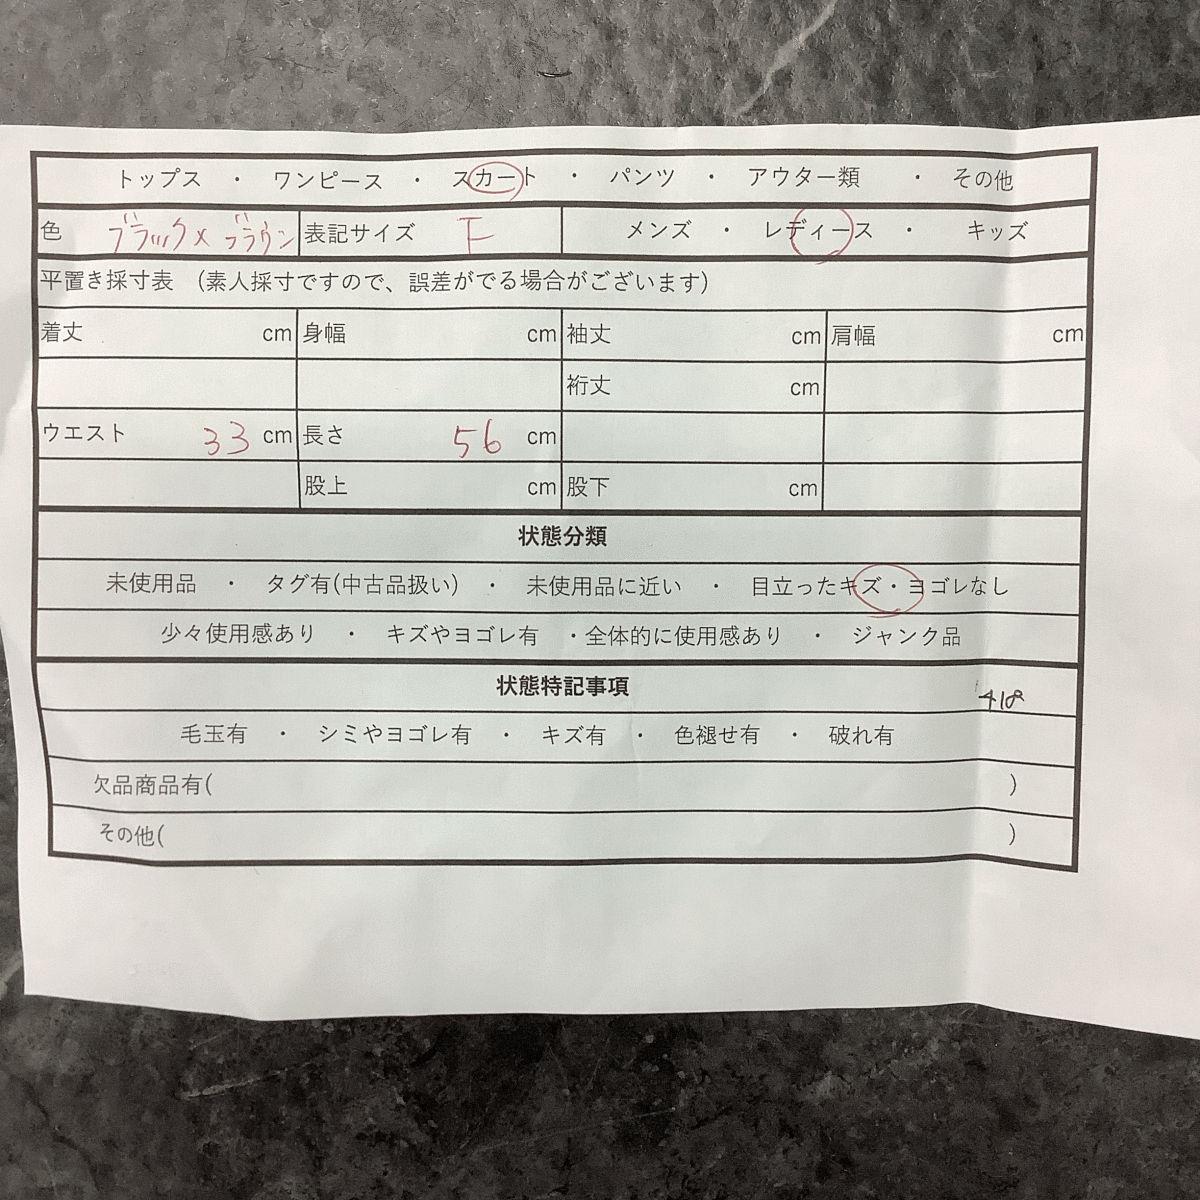 トップス ・ ワンピース ・ スカート ・ パンツ ・ アウター類 ・ その他
色 ブラック×ブラウン 表記サイズ F メンズ ・ レディース ・ キッズ
平置き採寸表 (素人採寸ですので、誤差がでる場合がございます)
着丈 cm 身幅 cm 袖丈 cm 肩幅 cm
裄丈 cm
ウエスト 33 cm 長さ 56 cm
股上 cm 股下 cm
状態分類
未使用品 ・ タグ有(中古品扱い) ・ 未使用品に近い ・ 目立ったキズ・ヨゴレなし
少々使用感あり ・ キズやヨゴレ有 ・全体的に使用感あり ・ ジャンク品
状態特記事項 418
毛玉有 ・ シミやヨゴレ有 ・ キズ有 ・ 色褪せ有 ・ 破れ有
欠品商品有( )
その他( )